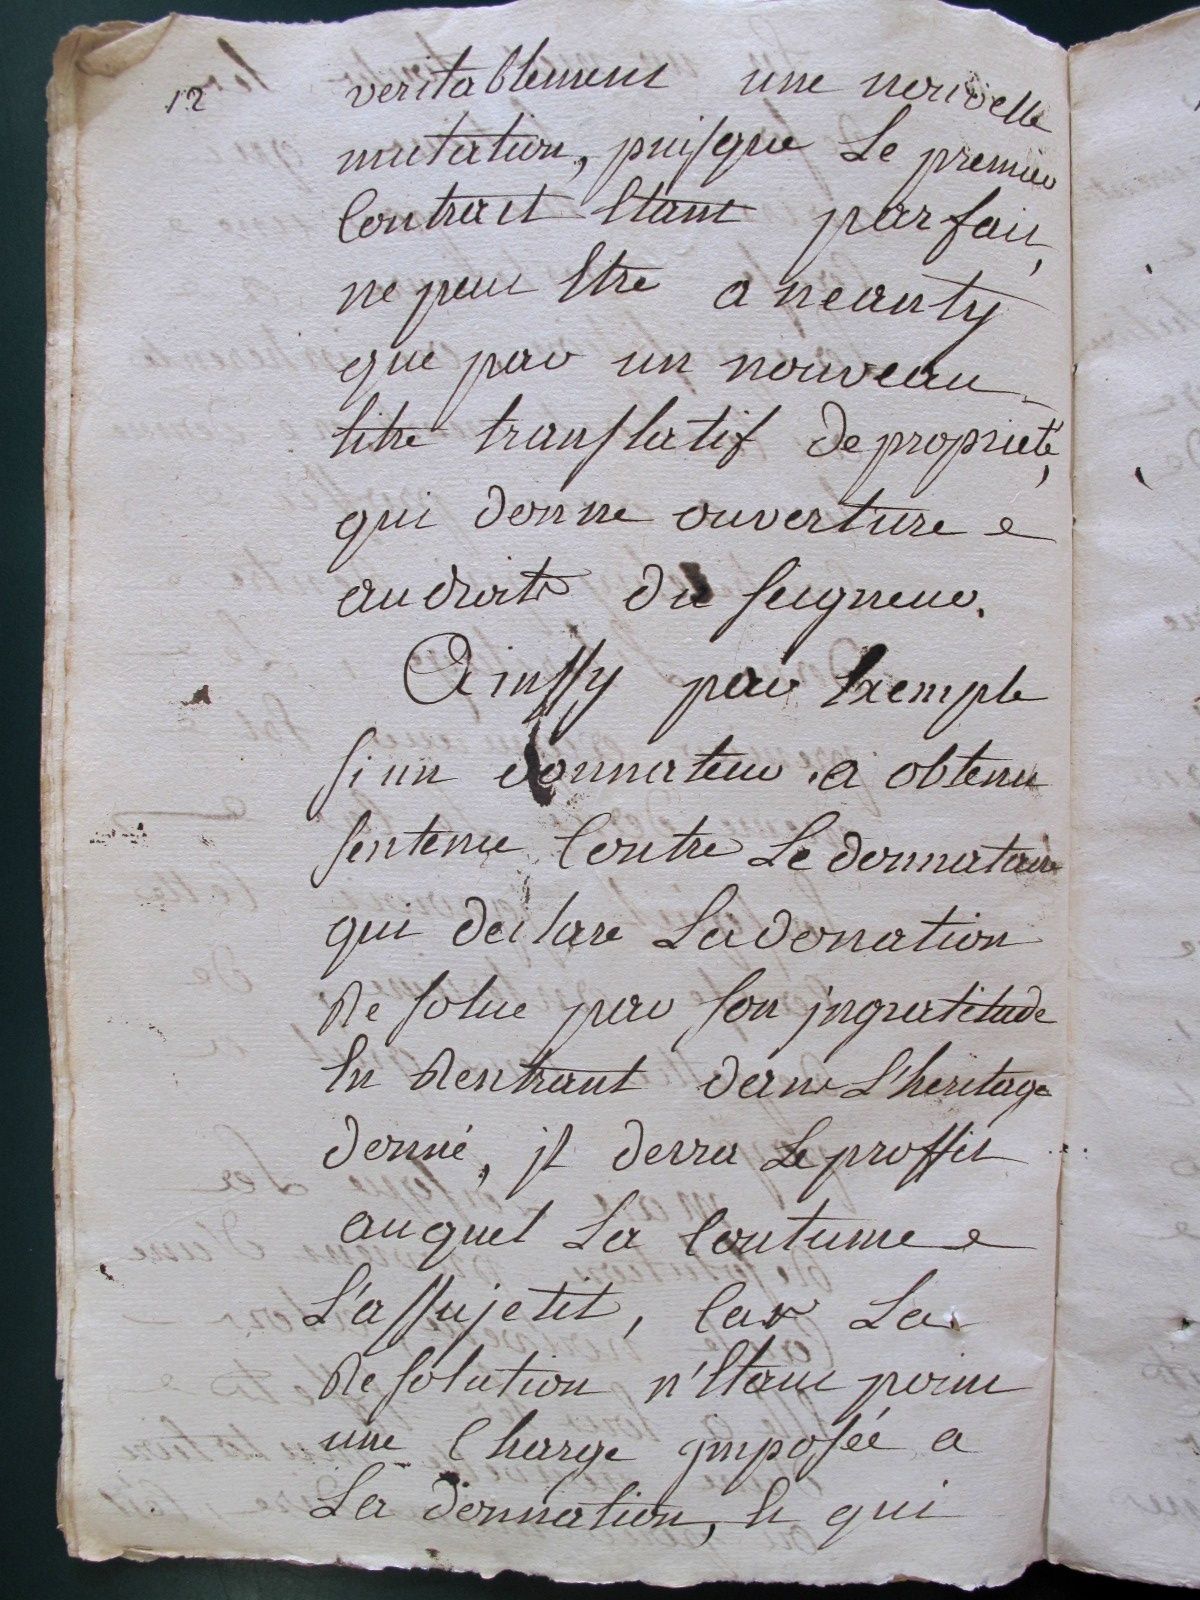 12
veritablement une nouvelle
mutation, puisque Le premier
Contract Etant parfait,
ne peut Etre aneanty
que par un nouveau
titre translatif de proprieté,
qui donne ouverture
au droit du seigneur.
Ainssy par Exemple
si un donnateur a obtenu
sentence Contre Le donnataire
qui declare La donation
Resolue par son jngratitude
En Rentrant dans L'heritage
donné, jl devra Le proffit
auquel La Coutume
L'assujetit, Car La
Resolution n'Etant point
une Charge jmposée a
La donnation, Et qui